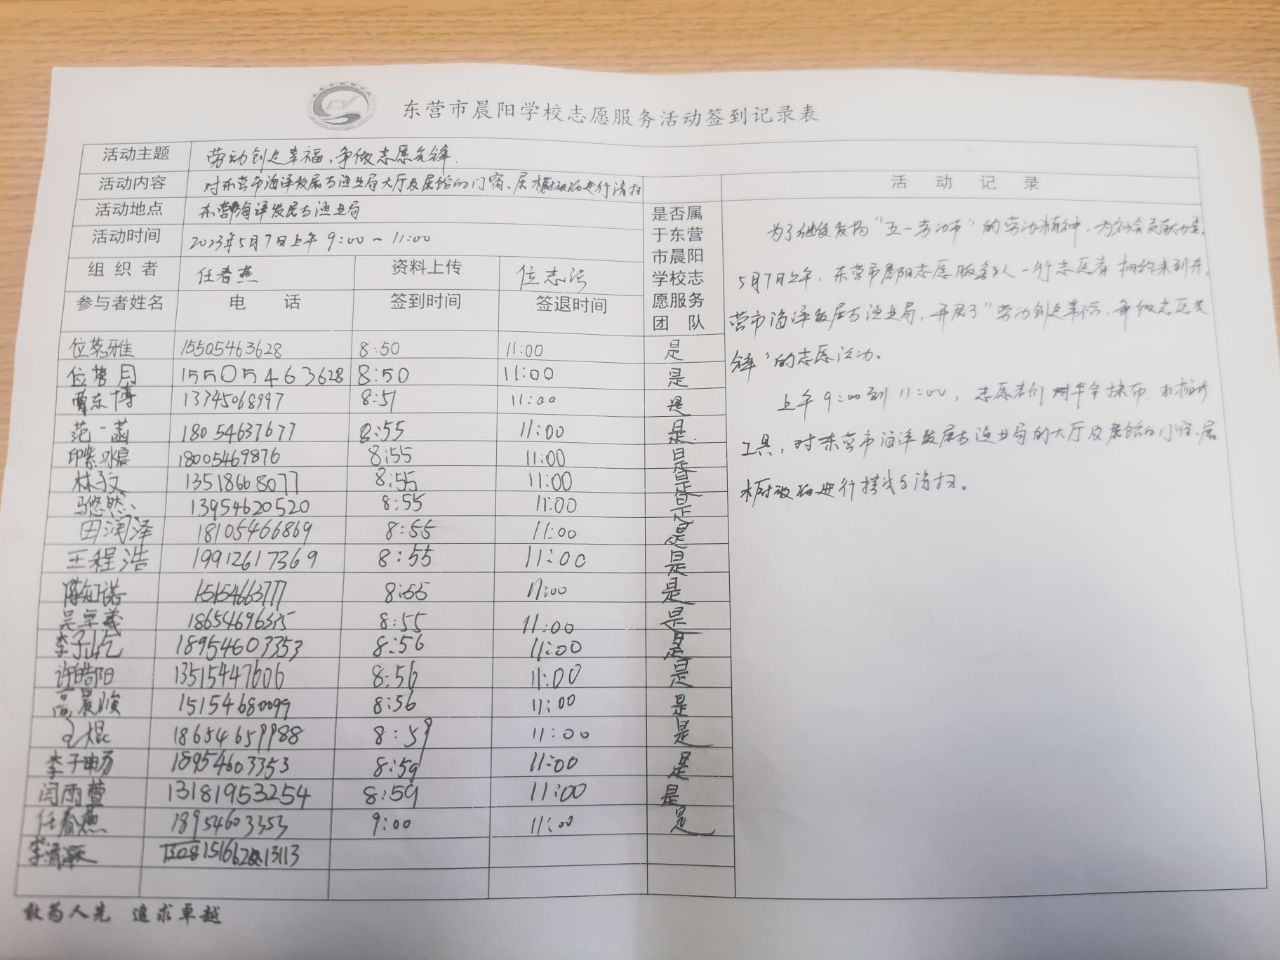 东营市晨阳学校志愿服务活动签到记录表
活动主题 劳动创造幸福,争做志愿先锋.
活动内容 对东营市海洋发展与渔业局大厅及展馆的门窗、展橱设施进行清扫
活动地点 东营市海洋发展与渔业局
活动时间 2023年5月7日上午 9:00～11:00
组织者 任春燕 资料上传
参与者姓名 电话 签到时间 签退时间
是否属
于东营
市晨阳
学校志
愿服务
团队
15505463628 8:50 11:00 是
15505463628 8:50 11:00 是
13745068997 8:51 11:00 是
范一菡 18054637677 8:55 11:00 是
18005469876 8:55 11:00 是
林子文 13518668077 8:55 11:00 是
马悠然 13954620520 8:55 11:00 是
田润泽 18105466869 8:55 11:00 是
王程浩 19912617369 8:55 11:00 是
陈知诺 15154663777 8:55 11:00 是
8:55 11:00 是
李子屹 18954603353 8:56 11:00 是
许皓阳 13515447606 8:56 11:00 是
15154680099 8:56 11:00 是
王焜 18654659988 8:59 11:00 是
18954603353 8:59 11:00 是
闫雨萱 13181953254 8:59 11:00 是
任春燕 18954603353 9:00 11:00 是
敢为人先 追求卓越
活动记录
为了继续发扬“五一劳动节”的劳动精神,为社会贡献力量,
5月7日上午,东营市晨阳志愿服务 人一行志愿者相约来到东
营市海洋发展与渔业局,开展了“劳动创造幸福,争做志愿先
锋”的志愿活动。
上午9:00到11:00,志愿者们 抹布
工具,对东营市海洋发展与渔业局的大厅及展馆的门窗、展
橱设施进行擦拭与清扫。